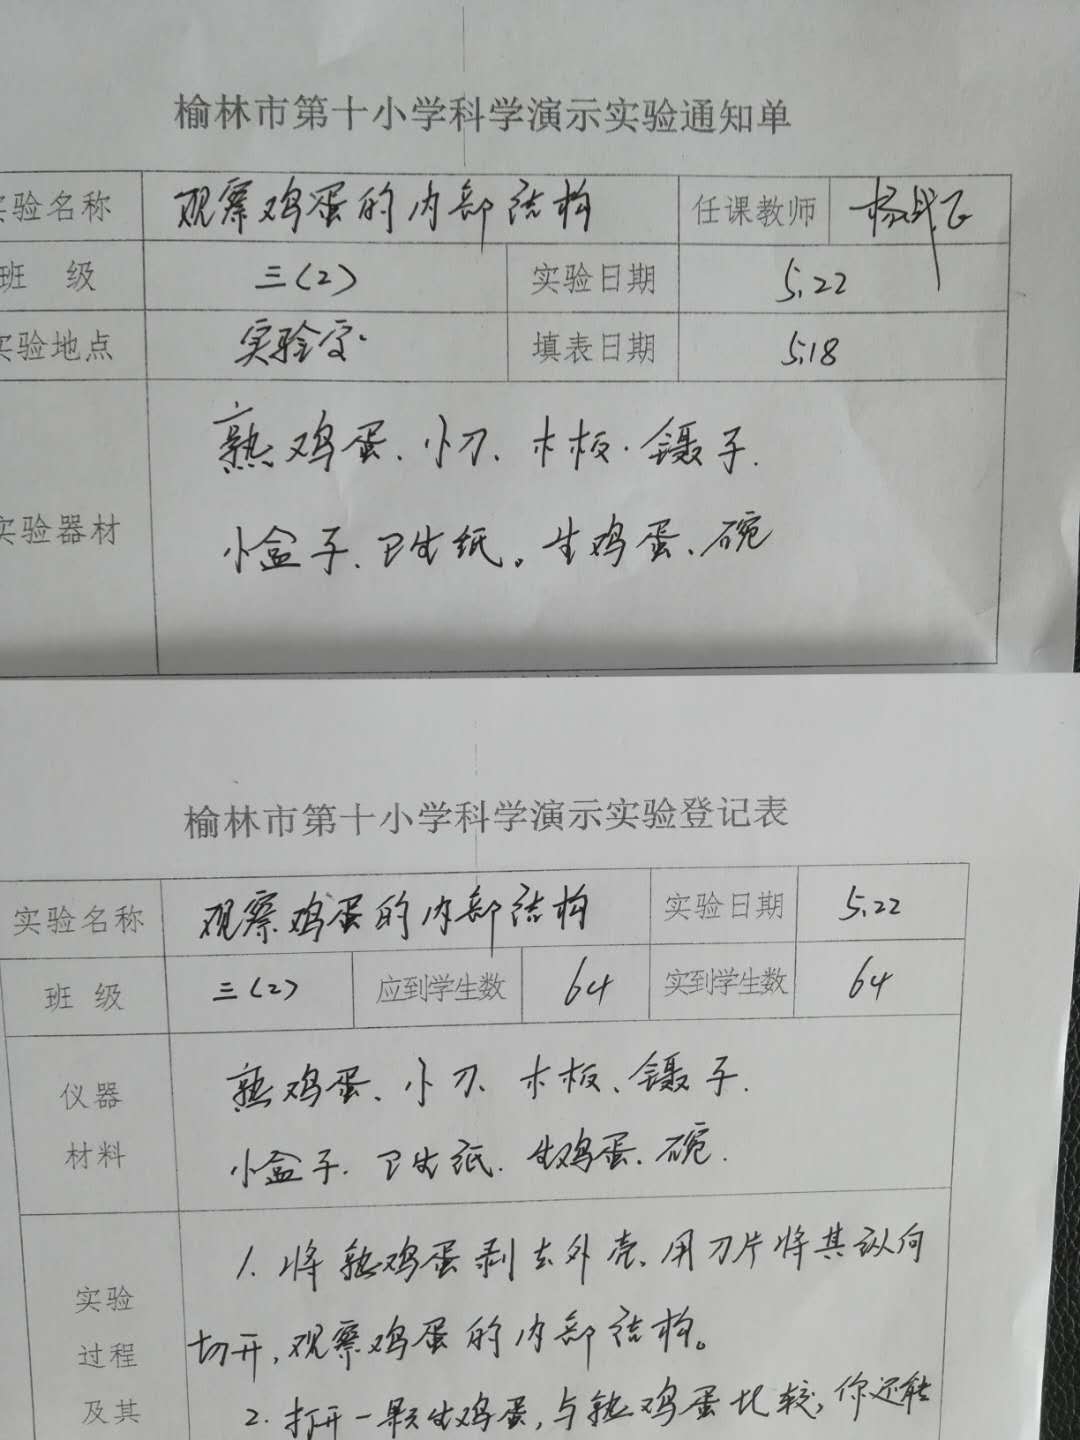 榆林市第十小学科学演示实验通知单
实验名称 观察鸡蛋的内部结构 任课教师 杨
班 级 三(2) 实验日期 5.22
实验地点 实验室 填表日期 5.18
熟鸡蛋、小刀、木板、镊子.
实验器材
小盒子、卫生纸。生鸡蛋、碗
榆林市第十小学科学演示实验登记表
实验名称 观察鸡蛋的内部结构 实验日期 5.22
班 级 三(2) 应到学生数 64 实到学生数 64
仪器 熟鸡蛋、小刀、木板、镊子.
材料 小盒子、卫生纸、生鸡蛋、碗.
1. 将熟鸡蛋剥去外壳、用刀片将其纵向
实验
过程 切开,观察鸡蛋的内部结构。
及其 2. 打开一颗生鸡蛋,与熟鸡蛋比较,你还能